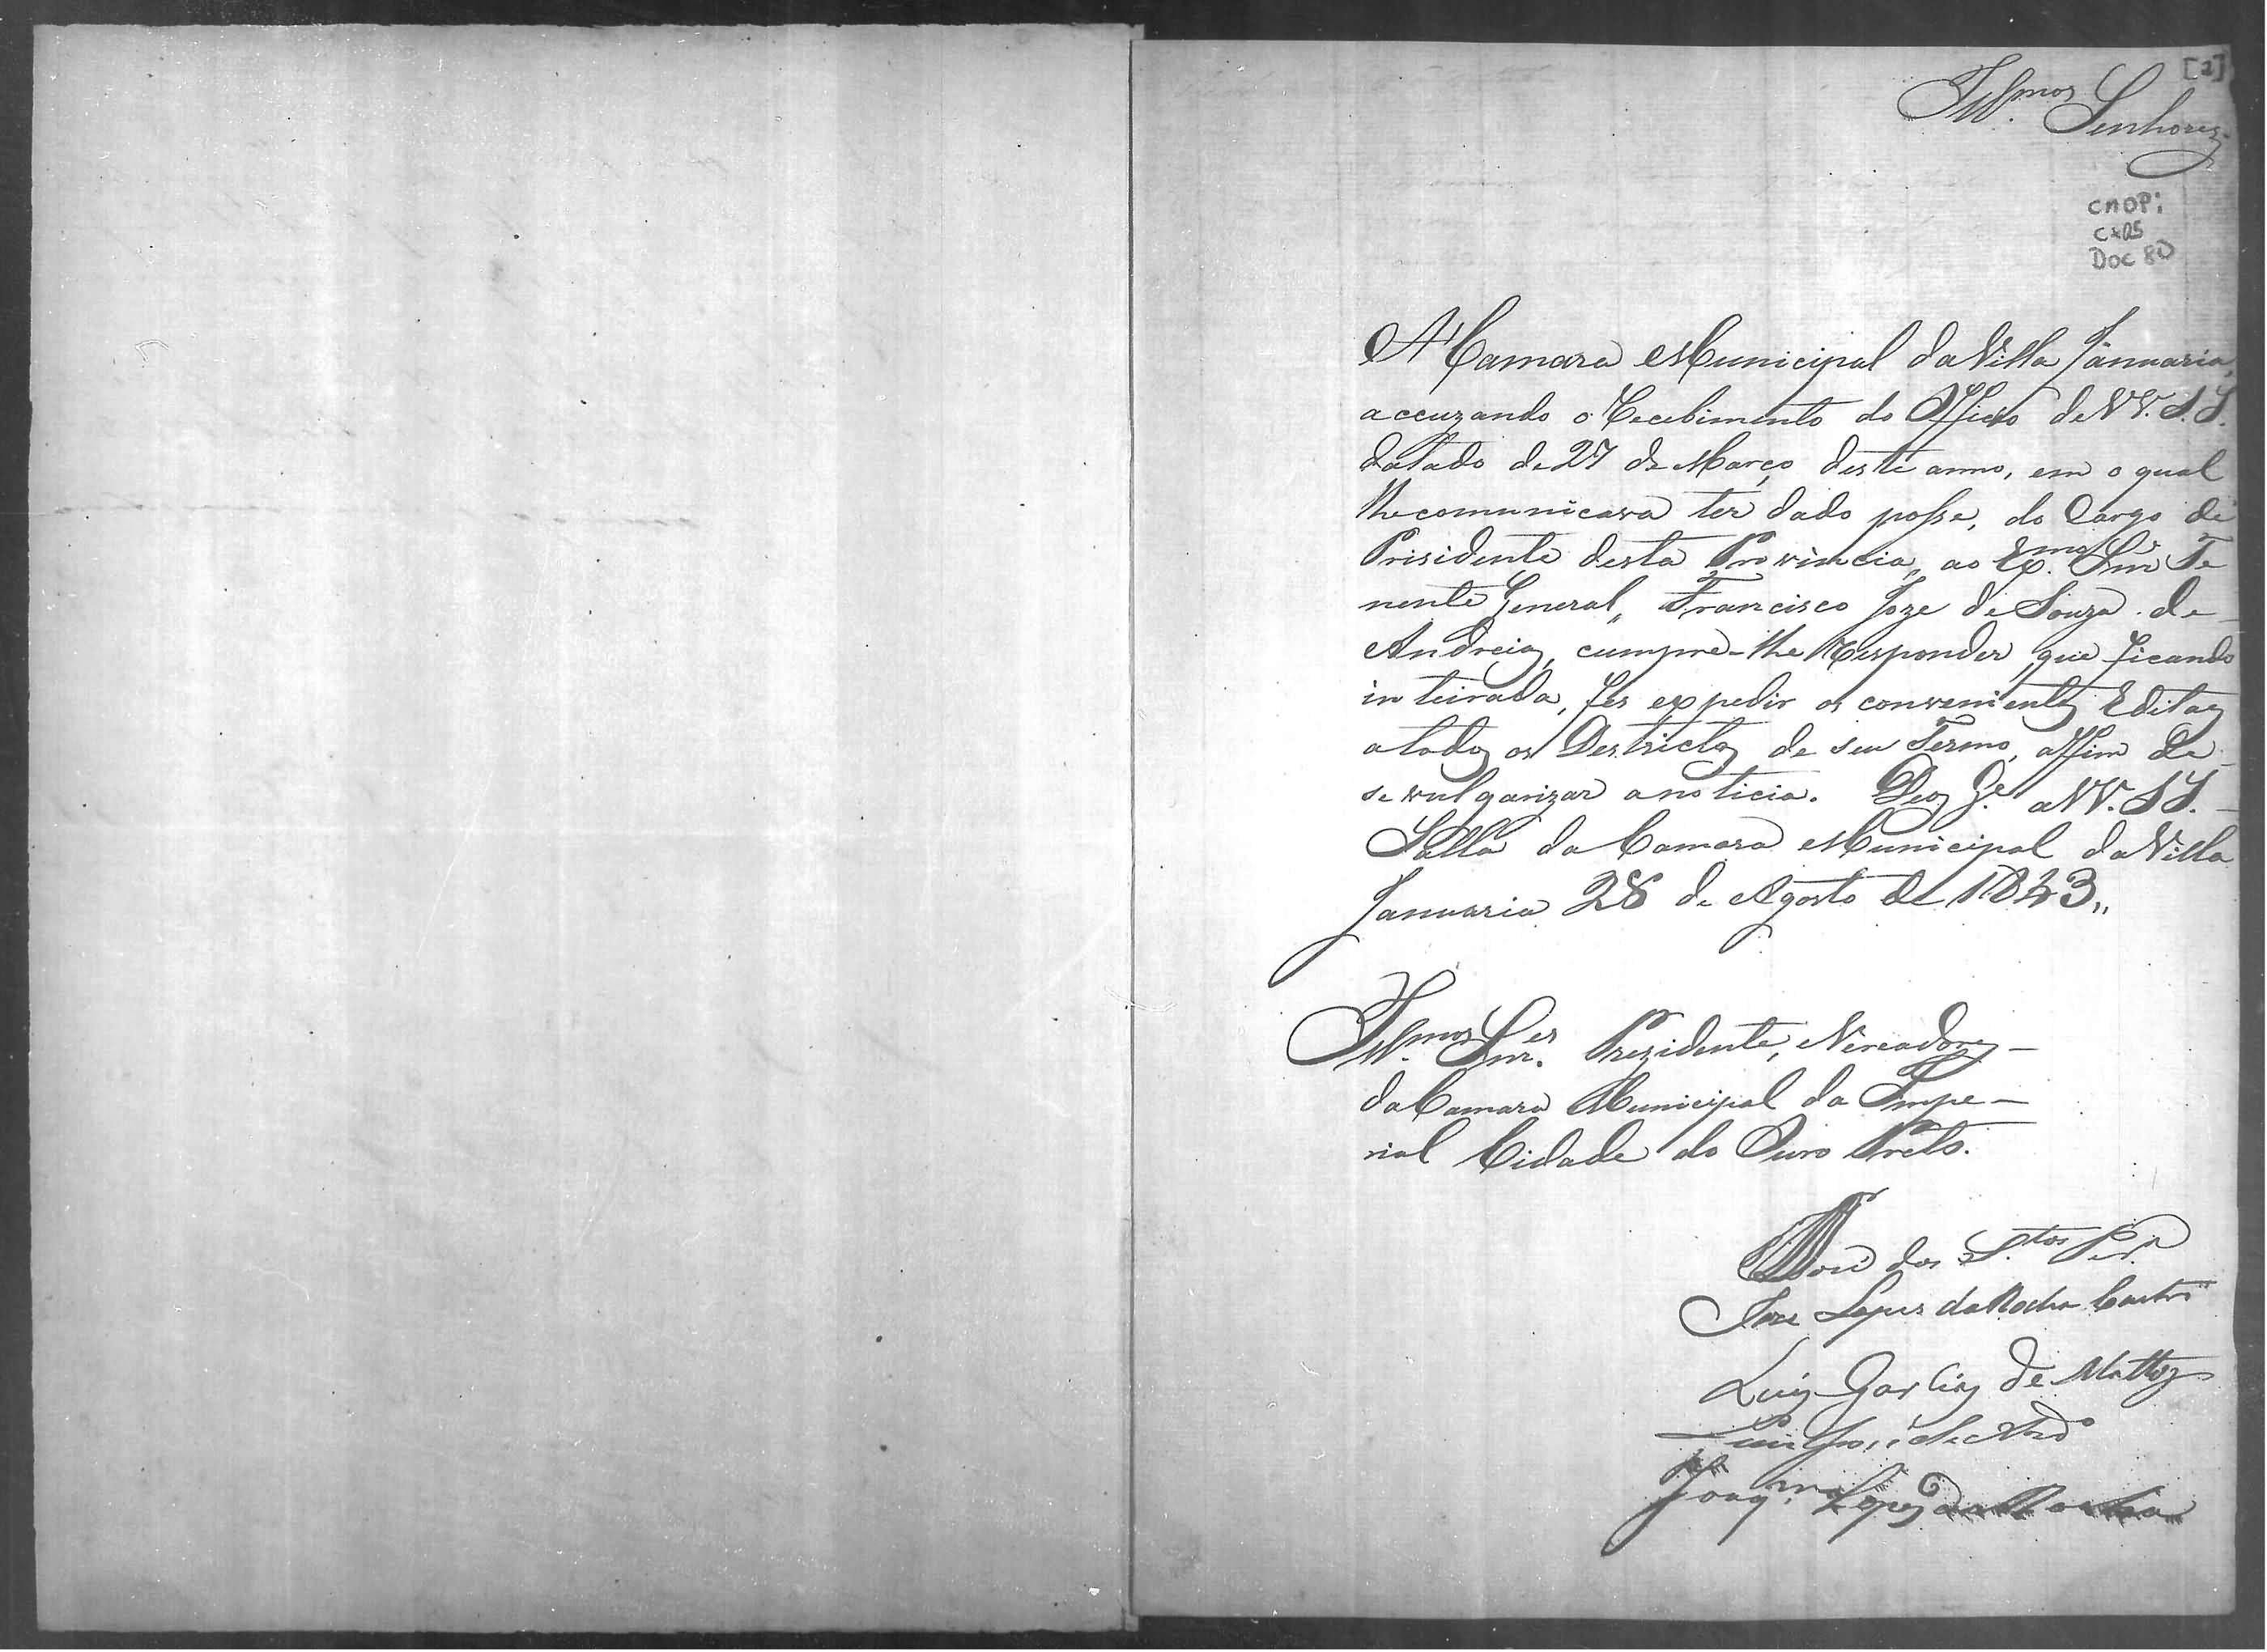 [2]
Ill.mos Senhores
CMOP;
Cx 05
Doc 80
A Camara Municipal da Villa Januaria,
accuzando o Recebimento do Officio de VV. S.S.
datado de 27 de Março deste anno, em o qual
lhe comunicava ter dado posse, do Cargo de
Prisidente desta Provincia, ao Ex.mo Snr Te
nente General,, Francisco Joze de Souza de
Andreia, cumpre-lhe Responder que ficando
inteirada, fes expedir os convenientes Editaes
a todos os Destrictos de seu Termo, affim de
se vulgarizar a noticia. Deos G.e a VV. SS.
Salla da Camara Municipal da Villa
Januaria 28 de Agosto de 1843,,
Ill.mos Snr.es Prezidente, Vereadores
da Camara Municipal da Impe-
rial Cidade do Ouro Preto.
dos S.tos Per.a
Joze Lopes da Rocha Castro
Luis Garcias de Mattos
Joaq.m Lopes da Rocha